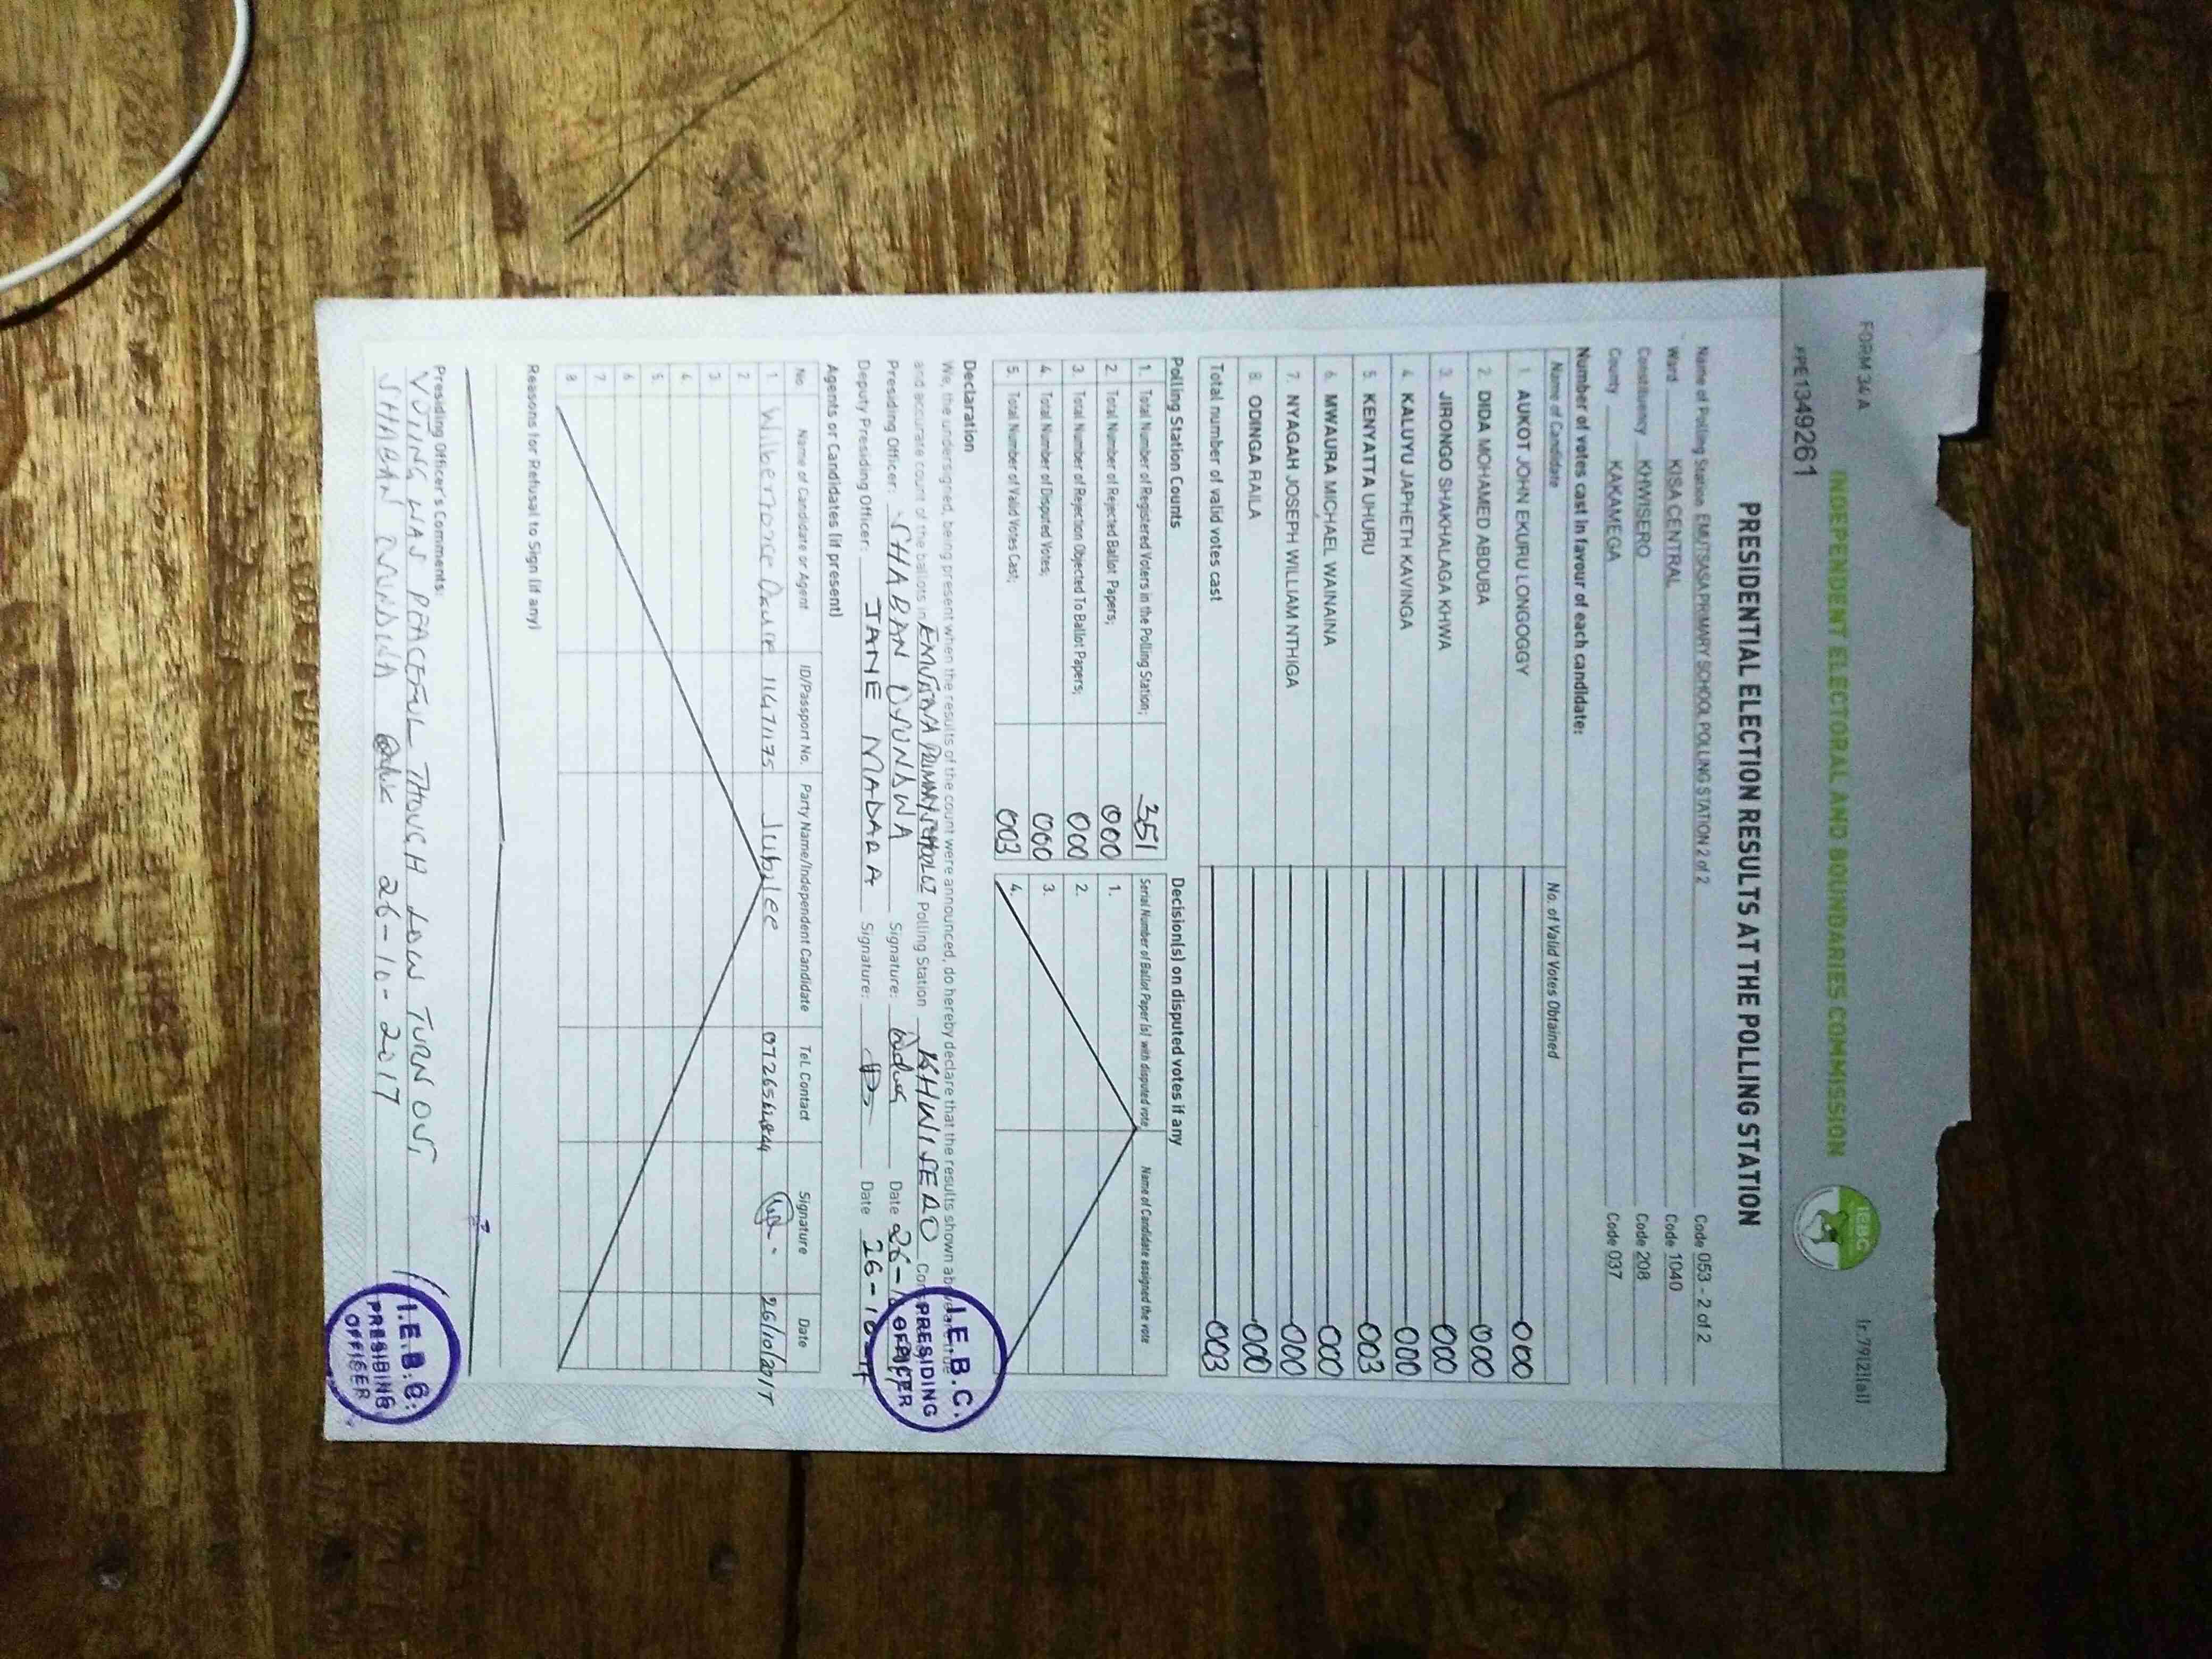 FORM 34 A
1r.79(2)(a)]
INDEPENDENT ELECTORAL AND BOUNDARIES COMMISSION
IEBC
PE1349261
PRESIDENTIAL ELECTION RESULTS AT THE POLLING STATION
Name of Polling Station EMUTSASA PRIMARY SCHOOL POLLING STATION 2 of 2 Code 053 - 2 of 2
Ward KISA CENTRAL Code 1040
Constituency KHWISERO Code 208
County KAKAMEGA Code 037
Number of votes cast in favour of each candidate:
Name of Candidate No. of Valid Votes Obtained
1. AUKOT JOHN EKURU LONGOGGY 000
2. DIDA MOHAMED ABDUBA 000
3. JIRONGO SHAKHALAGA KHWA 000
4. KALUYU JAPHETH KAVINGA 000
5. KENYATTA UHURU 003
6. MWAURA MICHAEL WAINAINA 000
7. NYAGAH JOSEPH WILLIAM NTHIGA 000
8. ODINGA RAILA 000
Total number of valid votes cast 003
Polling Station Counts
1. Total Number of Registered Voters in the Polling Station; 351
2. Total Number of Rejected Ballot Papers; 000
3. Total Number of Rejection Objected To Ballot Papers; 000
4. Total Number of Disputed Votes; 000
5. Total Number of Valid Votes Cast; 003
Decision(s) on disputed votes if any
Serial Number of Ballot Paper (s) with disputed vote Name of Candidate assigned the vote
1.
2.
3.
4.
Declaration
We, the undersigned, being present when the results of the count were announced, do hereby declare that the results shown above are true
and accurate count of the ballots in PRIMARY SCHOOL Polling Station KHWISERO
Presiding Officer: SHABAN Signature: Date 26-
Deputy Presiding Officer: JANE MADARA Signature: Date 26-10-
I.E.B.C.
PRESIDING
OFFICER
Agents or Candidates (if present)
No. Name of Candidate or Agent ID/Passport No. Party Name/Independent Candidate Tel. Contact Signature Date
1 Wilberforce 11471175 Jubilee 26/10/2017
2
3
4
5
6
7
8
Reasons for Refusal to Sign (if any)
Presiding Officer's Comments:
VOTING WAS PEACEFUL THOUGH LOW TURN OUT
SHABAN 26-10-2017
I.E.B.C.
PRESIDING
OFFICER